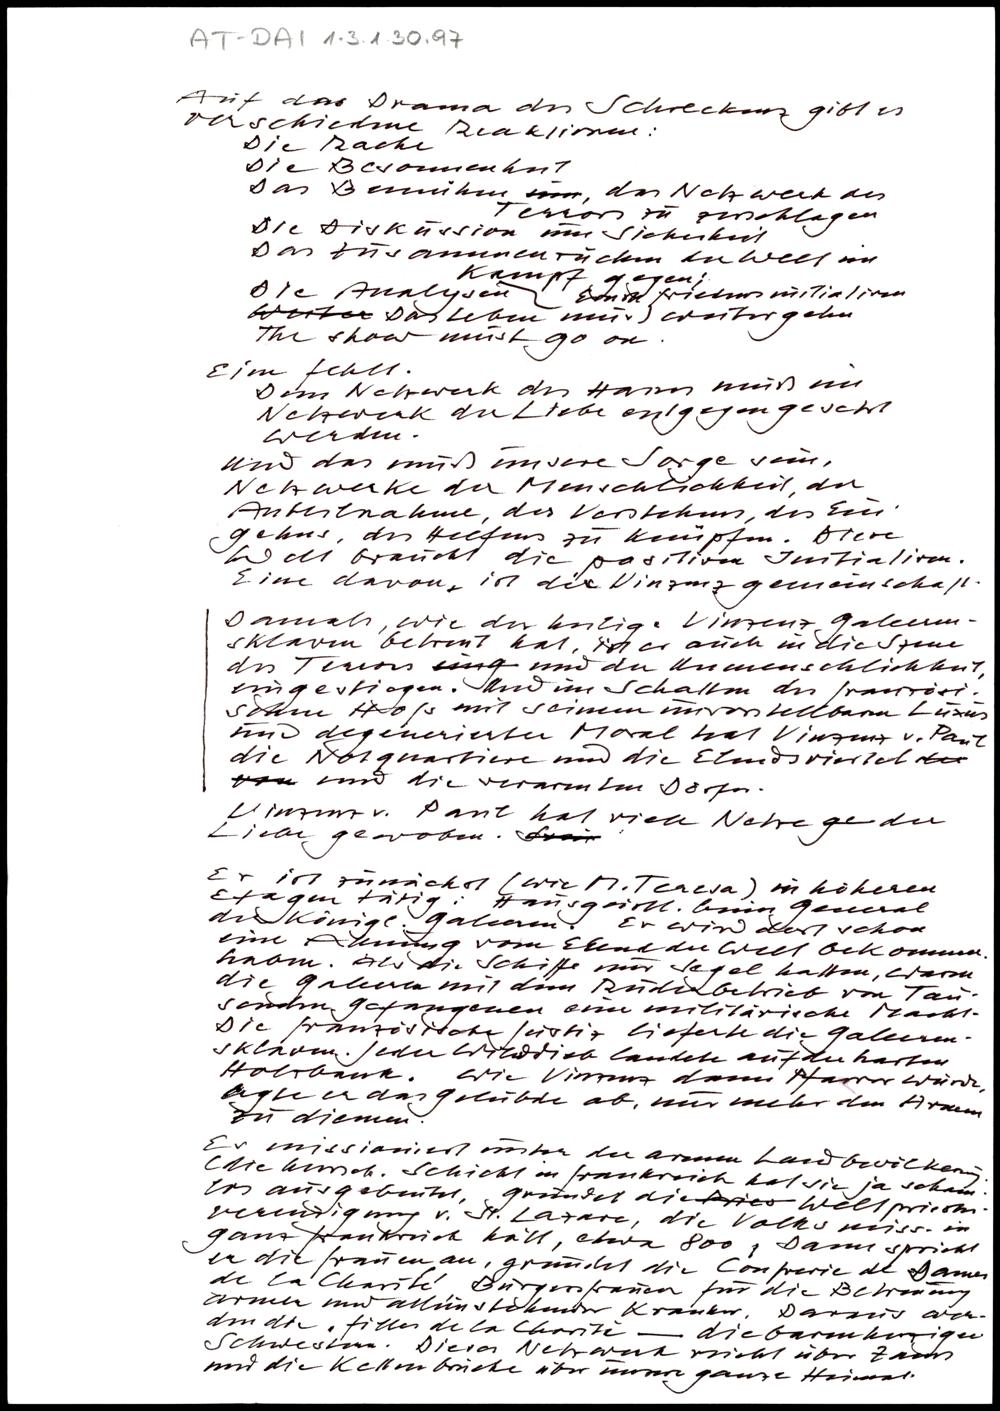 AT-DAI 1.3.1.30.97
Auf das Drama des Schreckens gibt es
verschiedene Reaktionen:
Die Rache
Die Besonnenheit
Das Bemühen um, das Netzwerk des
Terrors zu zerschlagen
Die Diskussion um Sicherheit
Das Zusammenrücken der Welt im
Kampf gegen;
Die Analysen Friedensinitiativen
Weiter Das Leben muß weitergehn
The show must go on.
Eine fehlt.
Dem Netzwerk des Hasses muß ein
Netzwerk der Liebe entgegengesetzt
werden.
Und das muß unsere Sorge sein,
Netzwerke der Menschlichkeit, der
Anteilnahme, des Verstehens, des Ein-
gehens, des Helfens zu knüpfen. Diese
Welt braucht die positiven Initiativen.
Eine davon, ist die Vinzenzgemeinschaft.
Damals, wie der heilige Vinzenz Galeeren-
sklaven betreut hat, ist er auch in die Szene
des Terrors und der Unmenschlichkeit,
eingestiegen. Und im Schatten des französi-
schen Hofs mit seinem unvorstellbaren Luxus
und degenerierter Moral hat Vinzenz v. Paul
die Notquartiere und die Elendsviertel der
von und die verarmten Dörfer.
Vinzenz v. Paul hat viele Netze der
Liebe gewoben.
Er ist zunächst (wie M. Teresa) in höheren
Etagen tätig: Hausgeistl. beim General
der Königl. Galeeren. Er wird dort schon
eine Ahnung vom Elend der Welt bekommen
haben. Als die Schiffe nur Segel hatten, waren
die Galeeren mit dem Ruderbetrieb von Tau-
senden Gefangenen eine militärische Macht.
Die französische Justiz lieferte die Galeeren-
sklaven. Jeder Wilddieb landete auf der harten
Holzbank. Wie Vinzenz dann Pfarrer wurde,
legte er das Gelübde ab, nur mehr den Armen
zu dienen.
Er missioniert unter der armen Landbevölkerung
(die herrsch. Schicht in Frankreich hat sie ja scham-
los ausgebeutet, gründet die Weltpriester-
vereinigung v. St. Lazare, die Volksmiss. in
ganz Frankreich hält, etwa 800, Dann spricht
er die Frauen an, gründet die Confrerie de Dames
de la Charité Bürgersfrauen für die Betreuung
armer und alleinstehender Kranker. Daraus wer-
den die „filles de la Charité — die barmherzigen
Schwestern. Dieses Netzwerk reicht über Zams
und die Kettenbrücke über unsere ganze Heimat.